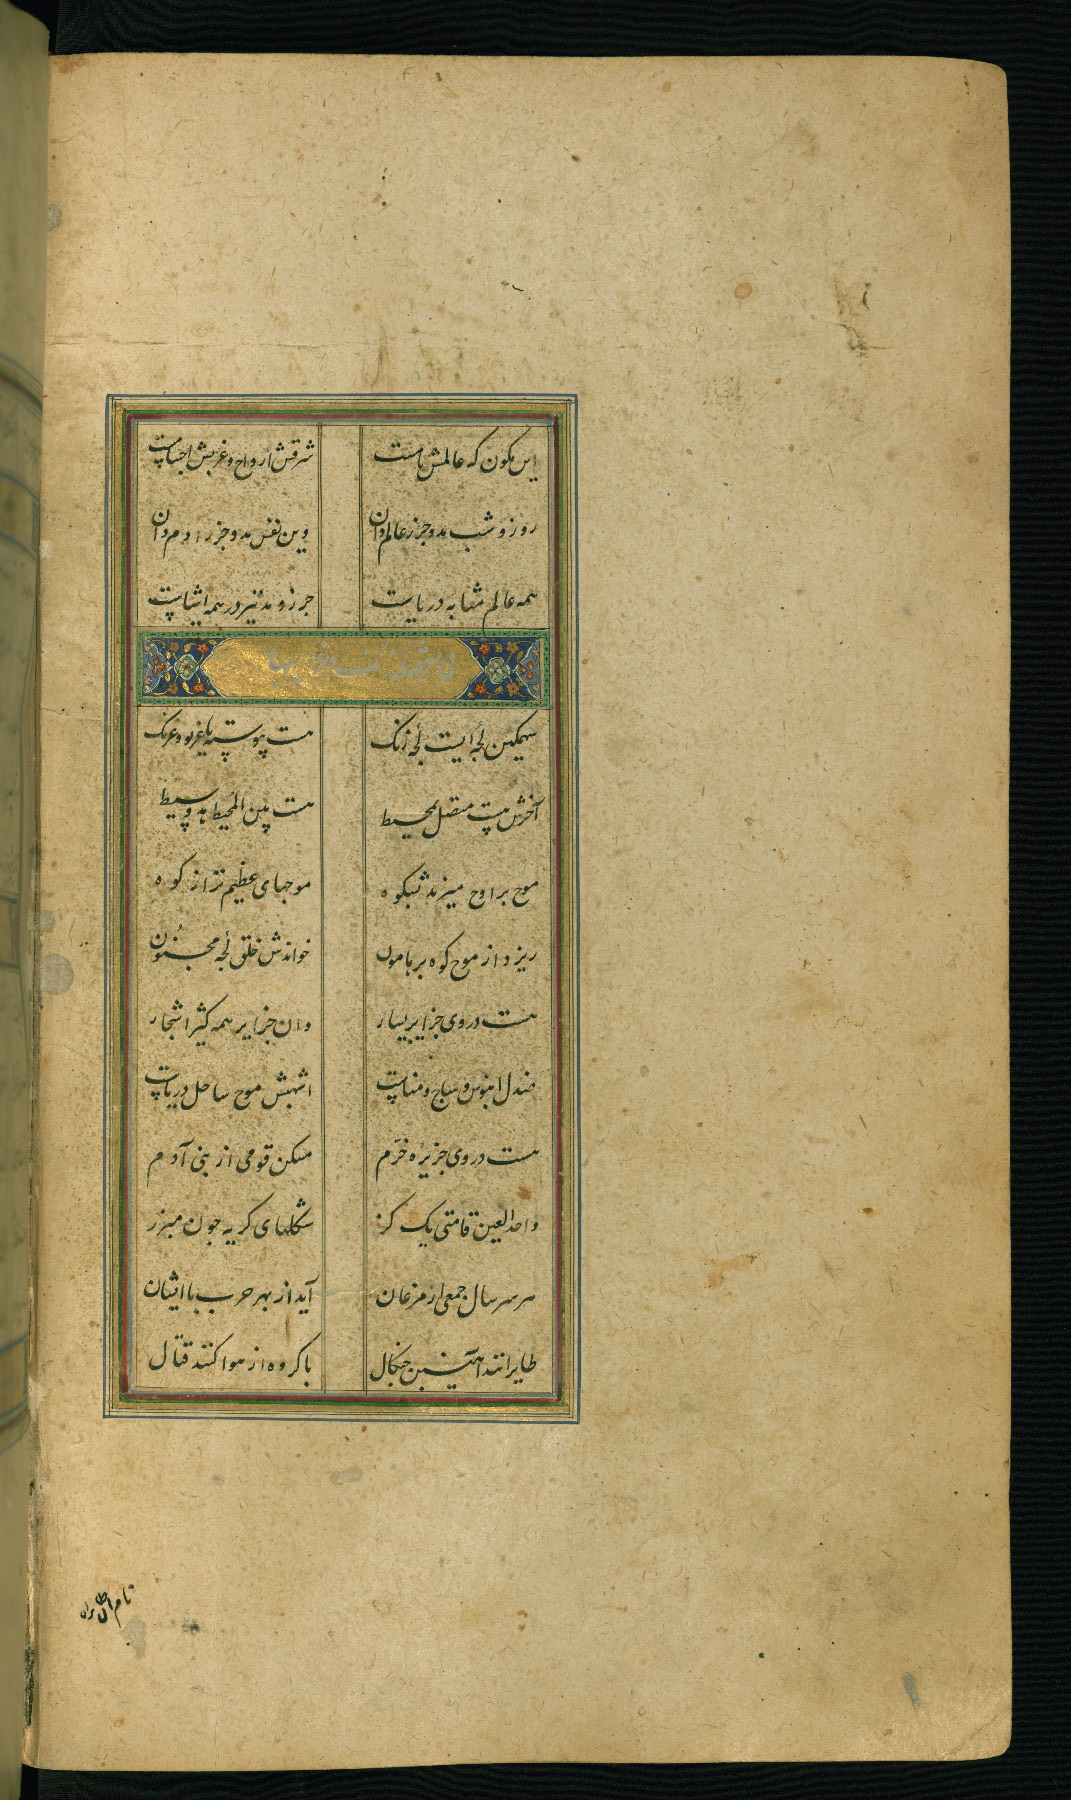 این مکون که عالمش نامست شرقش ارواح و غربش اجسامست
روز و شب مد و جزر عالم دان وین نفس مد و جزر آدم دان
همه عالم مثابه دریاست جزر و مد نیز در همه اشیاست
سهمکین لجه ایست لجه زنک هست پیوسته با غریو و غرنک
آخرش هست متصل بمحیط هست بین المحیط بد و بسیط
موج بر اوج میزند بشکوه موجهای عظیم تر از کوه
ریزد از موج کوه بر هامون خواندش خلق لجه مجنون
هست در وی جزایر بسیار وان جزایر همه کثیر اشجار
صندل ابنوس و ساج و مناست اشهبش موج ساحل دریاست
هست در وی جزیره خرم مسکن قومی از بنی آدم
واحد العین قامتی یک کز شکلهای کریه چون مبرز
هر سر سال جمعی از مرغان آید از بهر حرب با ایشان
طایرانند آهنین چنکال با کروه از هوا کنند قتال
نام آن طایران